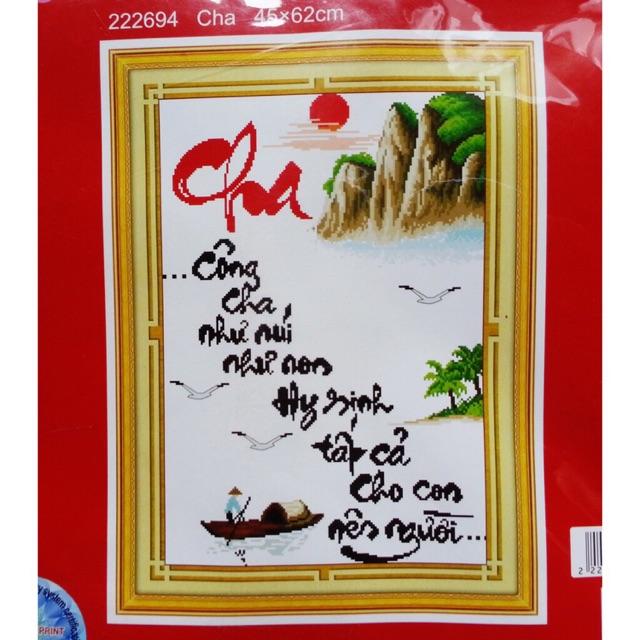 222694 Cha 45×62cm
Cha
...Công
cha
như núi
như non
Hy sinh
tất cả
Cho con
nên người...
PRINT
2 22